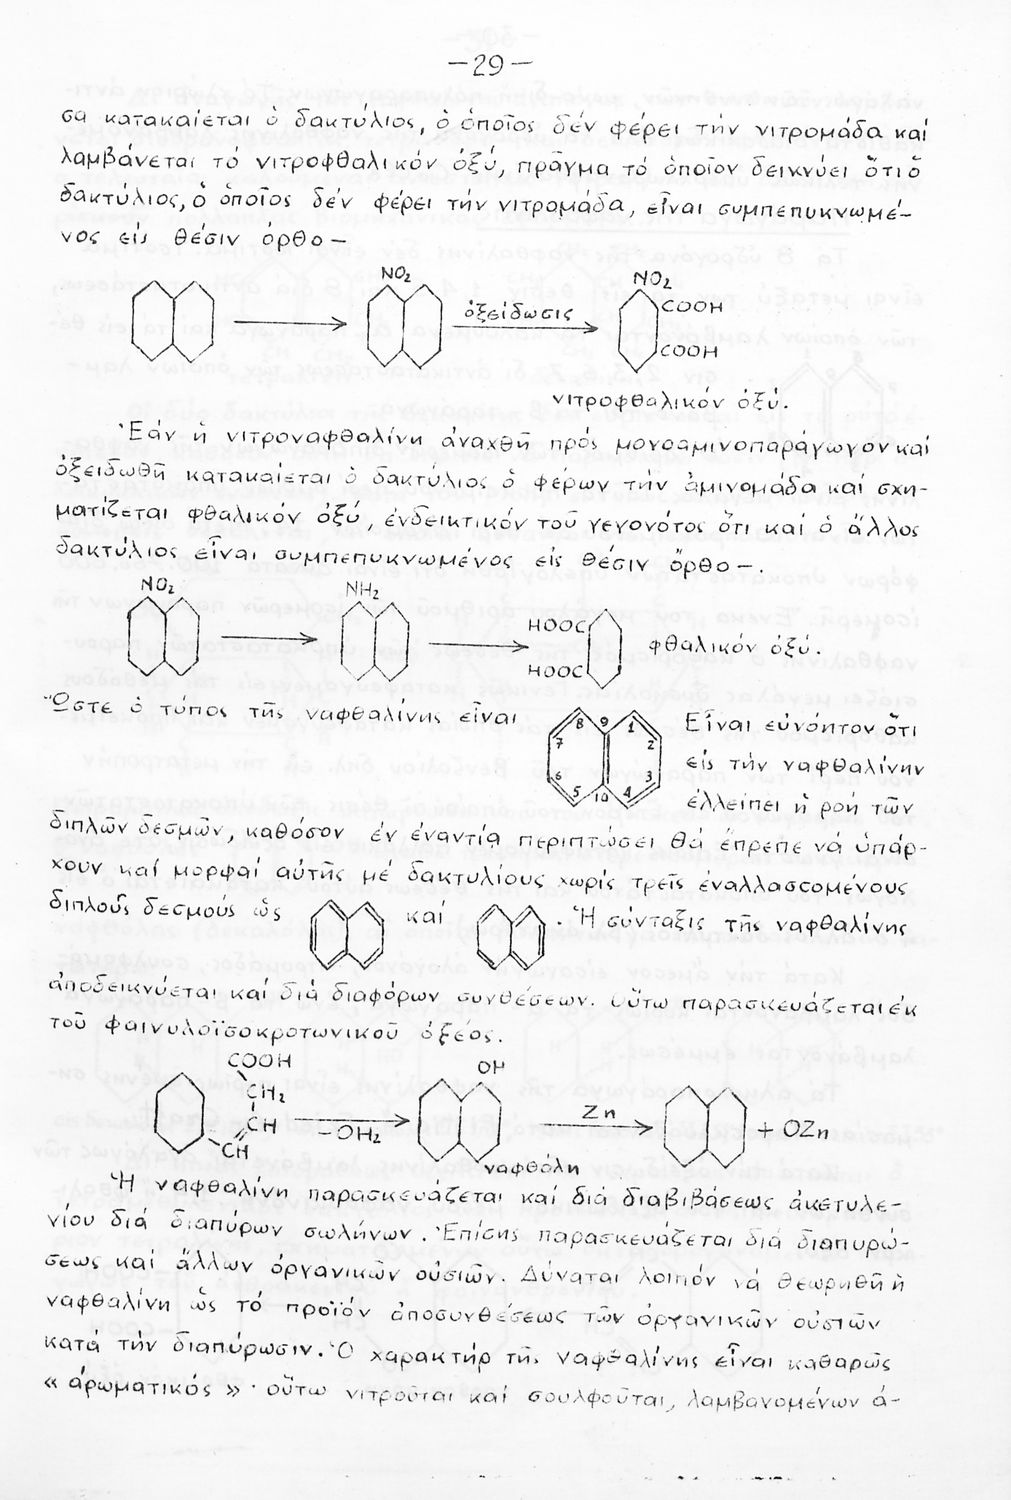 —29—
σα κατακαίεται ὁ δακτύλιος, ὁ ὁποῖος δέν φέρει τήν νιτρομάδα καί
λαμβάνεται τό νιτροφθαλικόν ὀξύ, πρᾶγμα τό ὁποῖον δεικνύει ὅτι ὁ
δακτύλιος, ὁ ὁποῖος δέν φέρει τήν νιτρομάδα, εἶναι συμπεπυκνωμέ-
νος εἰς θέσιν ὀρθο-
NO₂ ὀξείδωσις NO₂ COOH COOH
νιτροφθαλικόν ὀξύ.
Ἐάν ἡ νιτροναφθαλίνη ἀναχθῆ πρός μονοαμινοπαράγωγον καί
ὀξειδωθῆ κατακαίεται ὁ δακτύλιος ὁ φέρων τήν ἀμινομάδα καί σχη-
ματίζεται φθαλικόν ὀξύ, ἐνδεικτικόν τοῦ γεγονότος ὅτι καί ὁ ἄλλος
δακτύλιος εἶναι συμπεπυκνωμένος εἰς θέσιν ὄρθο-.
NO₂ NH₂ HOOC HOOC φθαλικόν ὀξύ.
Ὥστε ὁ τύπος τῆς ναφθαλίνης εἶναι 8 9 1 7 2 6 3 5 10 4 Εἶναι εὐνόητον ὅτι
εἰς τήν ναφθαλίνην
ἐλλείπει ἡ ροή τῶν
διπλῶν δεσμῶν, καθόσον ἐν ἐναντίᾳ περιπτώσει θά ἔπρεπε νά ὑπάρ-
χουν καί μορφαί αὐτῆς μέ δακτυλίους χωρίς τρεῖς ἐναλλασσομένους
διπλοῦς δεσμούς ὡς καί . Ἡ σύνταξις τῆς ναφθαλίνης
ἀποδεικνύεται καί διά διαφόρων συνθέσεων. Οὕτω παρασκευάζεται ἐκ
τοῦ φαινυλοϊσοκροτωνικοῦ ὀξέος.
COOH CH₂ CH CH -OH₂ OH ναφθόλη Zn + OZn
Ἡ ναφθαλίνη παρασκευάζεται καί διά διαβιβάσεως ἀκετυλε-
νίου διά διαπύρων σωλήνων. Ἐπίσης παρασκευάζεται διά διαπυρώ-
σεως καί ἄλλων ὀργανικῶν οὐσιῶν. Δύναται λοιπόν νά θεωρηθῆ ἡ
ναφθαλίνη ὡς τό προϊόν ἀποσυνθέσεως τῶν ὀργανικῶν οὐσιῶν
κατά τήν διαπύρωσιν. Ὁ χαρακτήρ τῆς ναφθαλίνης εἶναι καθαρῶς
« ἀρωματικός » · οὕτω νιτροῦται καί σουλφοῦται, λαμβανομένων ἀ-